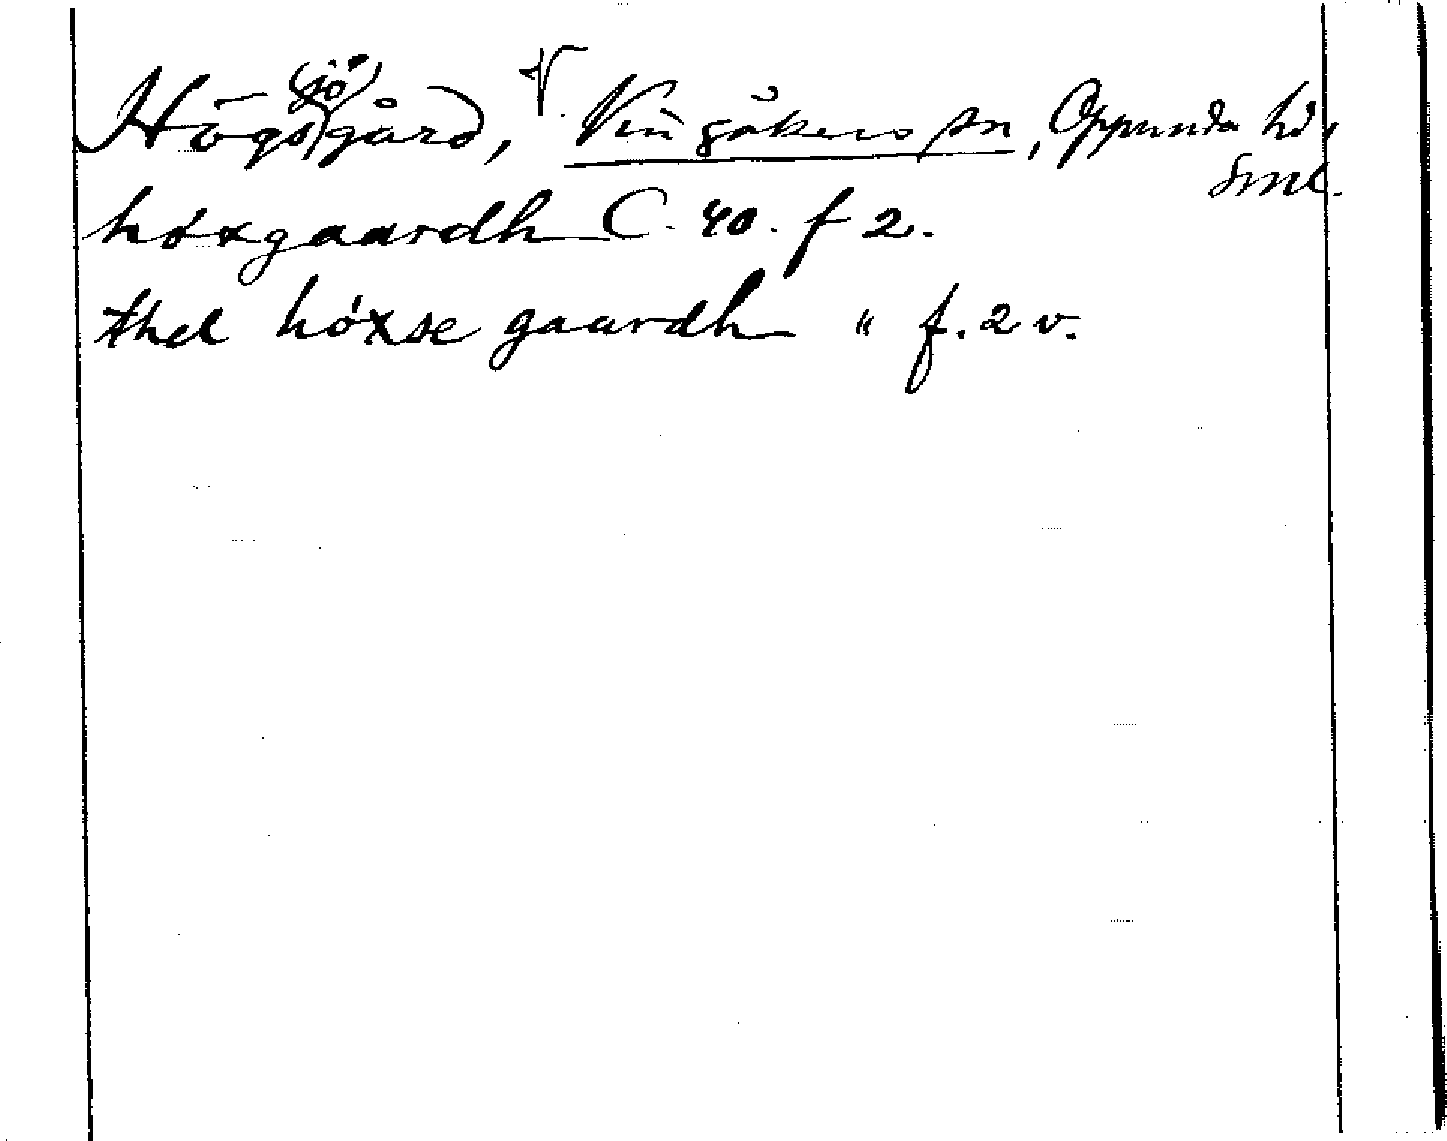 Högs(jö)gård, V. Vingåkers sn, Oppunda hd,
Sml.
hóxgaardh C. 40. f 2.
thel hóxse gaardh " f. 2 v.